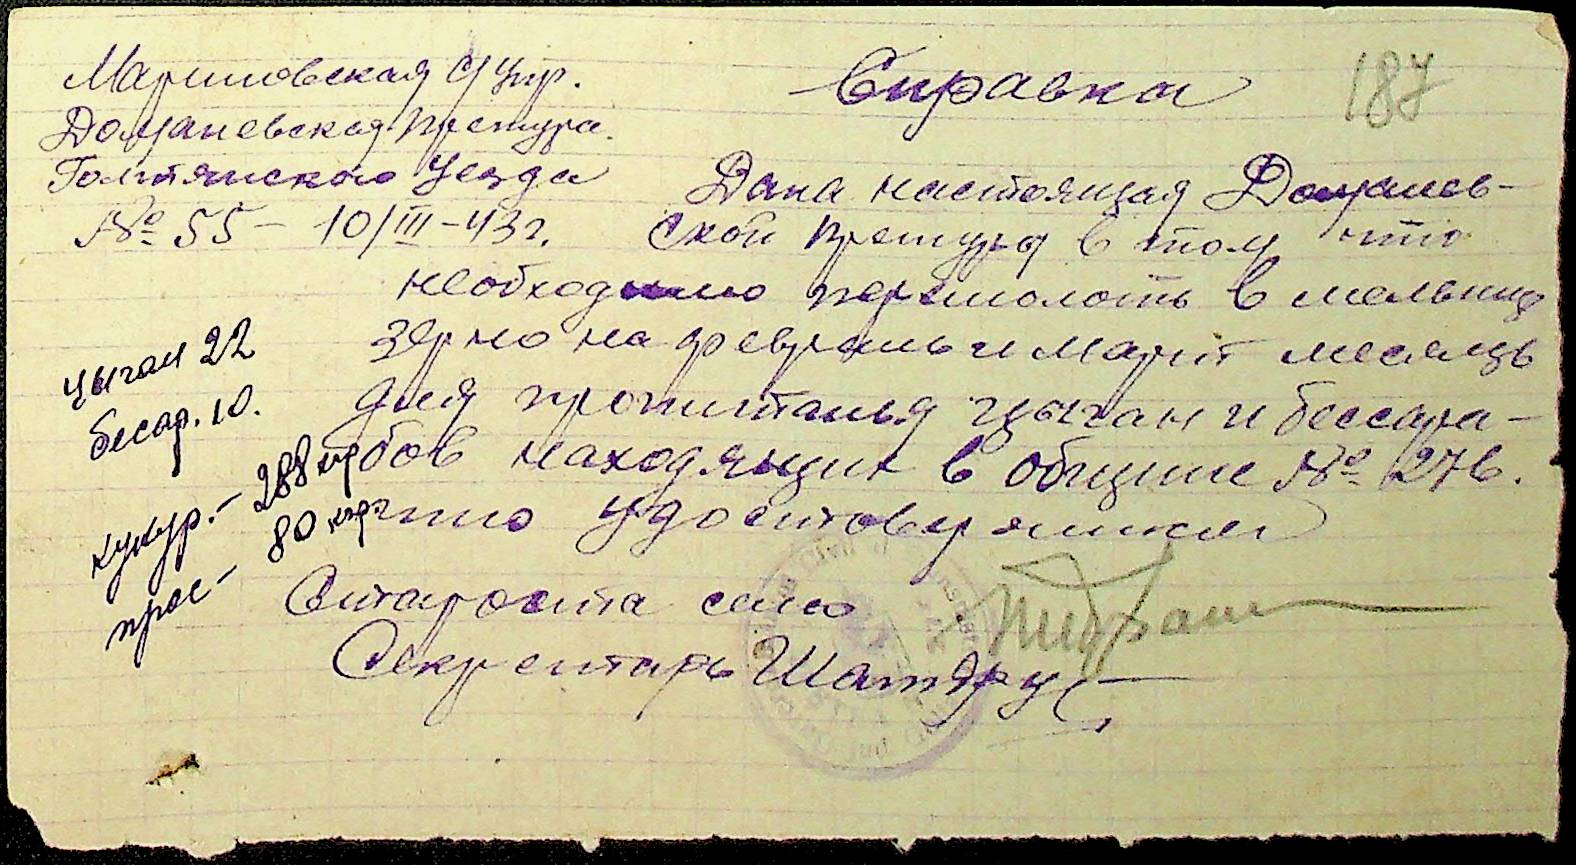 Мариновская С/упр.
Доманевская претура.
Голтянского Уезда
№ 55 – 10/III–43 г.
187
Справка
Дана настоящая Доманев-
ской претуры в том что
необходимо перемолоть в мельнице
зерно на февраль и март месяцы
для пропитанья цыган и бессара-
бов находящих в общине № 276.
что удостоверяется
цыган 22
бесар. 10.
кукур. – 288 кгр
прос – 80 кгр.
Староста села
Секретарь